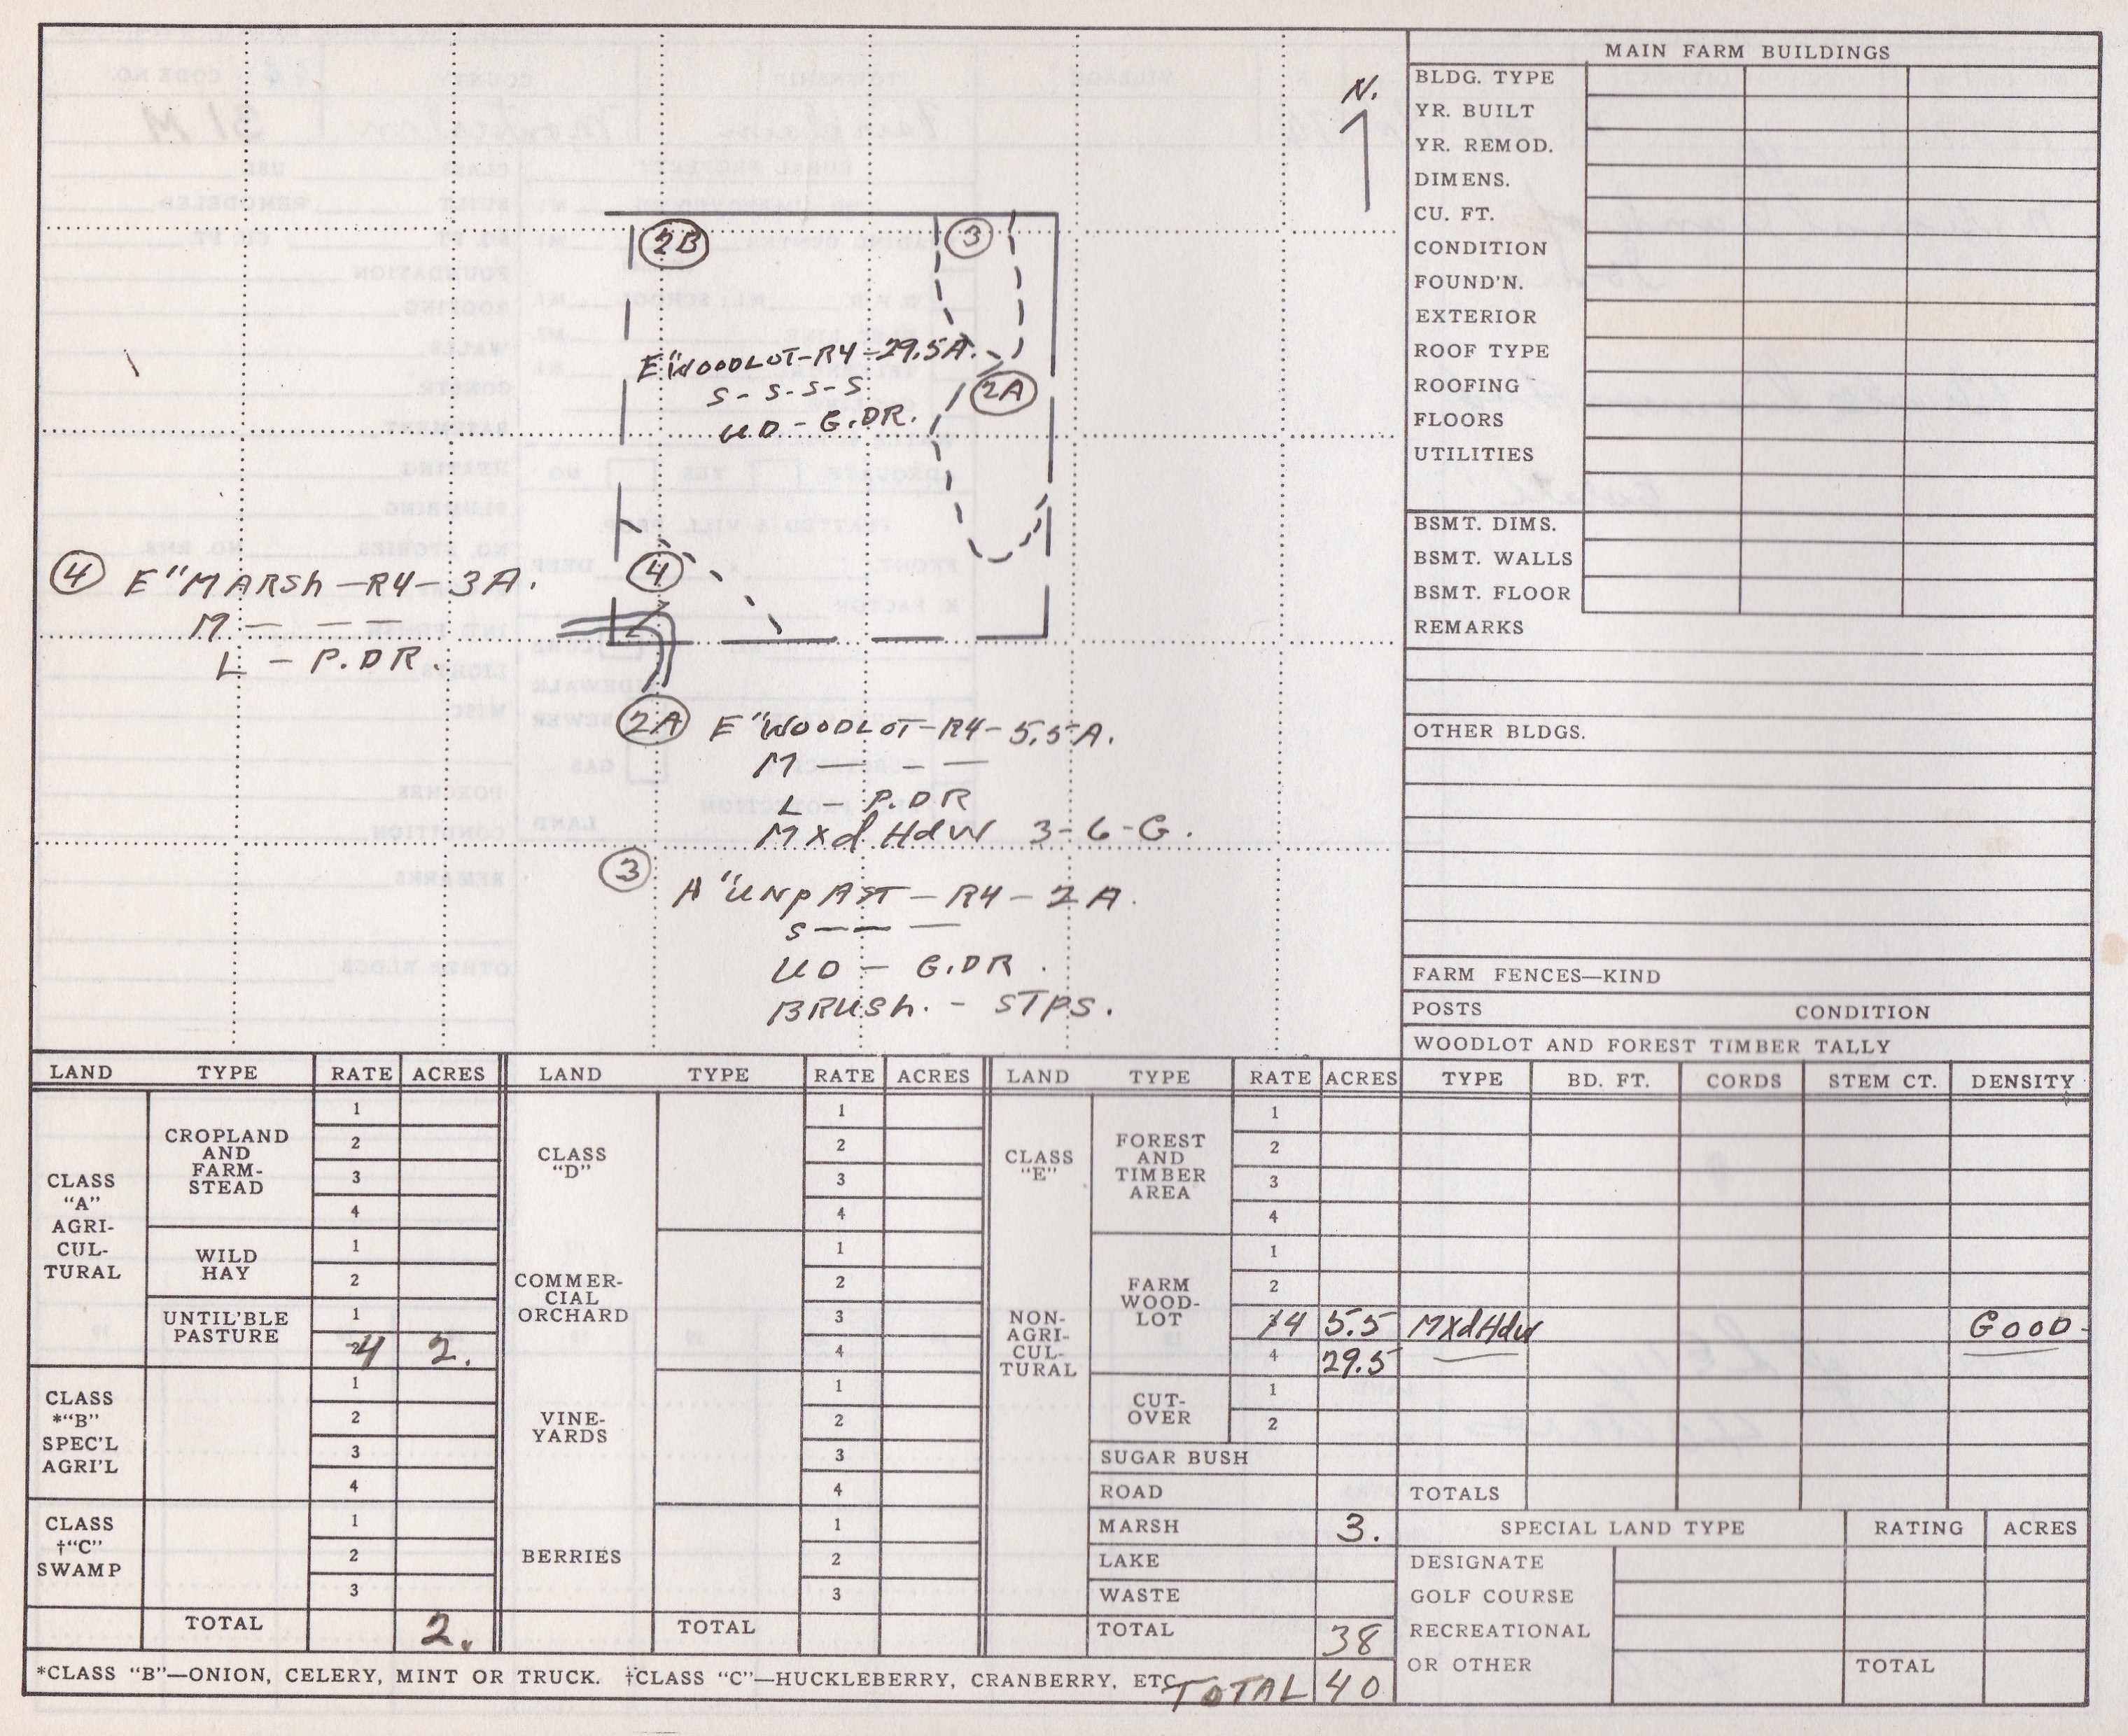 N.
2B
3
E"WOODLOT-R4-29.5A.
S-S-S-S
UD-G.DR.
2A
4
4 E"MARSh-R4-3A.
M — — —
L - P.DR.
2A E"WOODLOT-R4-5.5A.
M — - —
L - P.DR
MXd HdW 3-6-G.
3 A"UNpAST-R4-2A.
S - — —
UD - G.DR.
BRUSh. - STPS.
MAIN FARM BUILDINGS
BLDG. TYPE
YR. BUILT
YR. REMOD.
DIMENS.
CU. FT.
CONDITION
FOUND'N.
EXTERIOR
ROOF TYPE
ROOFING
FLOORS
UTILITIES
BSMT. DIMS.
BSMT. WALLS
BSMT. FLOOR
REMARKS
OTHER BLDGS.
FARM FENCES—KIND
POSTS CONDITION
WOODLOT AND FOREST TIMBER TALLY
TYPE BD. FT. CORDS STEM CT. DENSITY
MXdHdW GOOD
TOTALS
SPECIAL LAND TYPE RATING ACRES
DESIGNATE
GOLF COURSE
RECREATIONAL
OR OTHER TOTAL
LAND TYPE RATE ACRES
CLASS
"A"
AGRI-
CUL-
TURAL
CROPLAND
AND
FARM-
STEAD
1
2
3
4
WILD
HAY
1
2
UNTIL'BLE
PASTURE
1
4 2.
CLASS
*"B"
SPEC'L
AGRI'L
1
2
3
4
CLASS
†"C"
SWAMP
1
2
3
TOTAL 2.
LAND TYPE RATE ACRES
CLASS
"D"
1
2
3
4
COMMER-
CIAL
ORCHARD
1
2
3
4
VINE-
YARDS
1
2
3
4
BERRIES
1
2
3
TOTAL
LAND TYPE RATE ACRES
CLASS
"E"
NON-
AGRI-
CUL-
TURAL
FOREST
AND
TIMBER
AREA
1
2
3
4
FARM
WOOD-
LOT
1
2
4 5.5
4 29.5
CUT-
OVER
1
2
SUGAR BUSH
ROAD
MARSH 3.
LAKE
WASTE
TOTAL 38
*CLASS "B"—ONION, CELERY, MINT OR TRUCK. †CLASS "C"—HUCKLEBERRY, CRANBERRY, ETC.
TOTAL 40